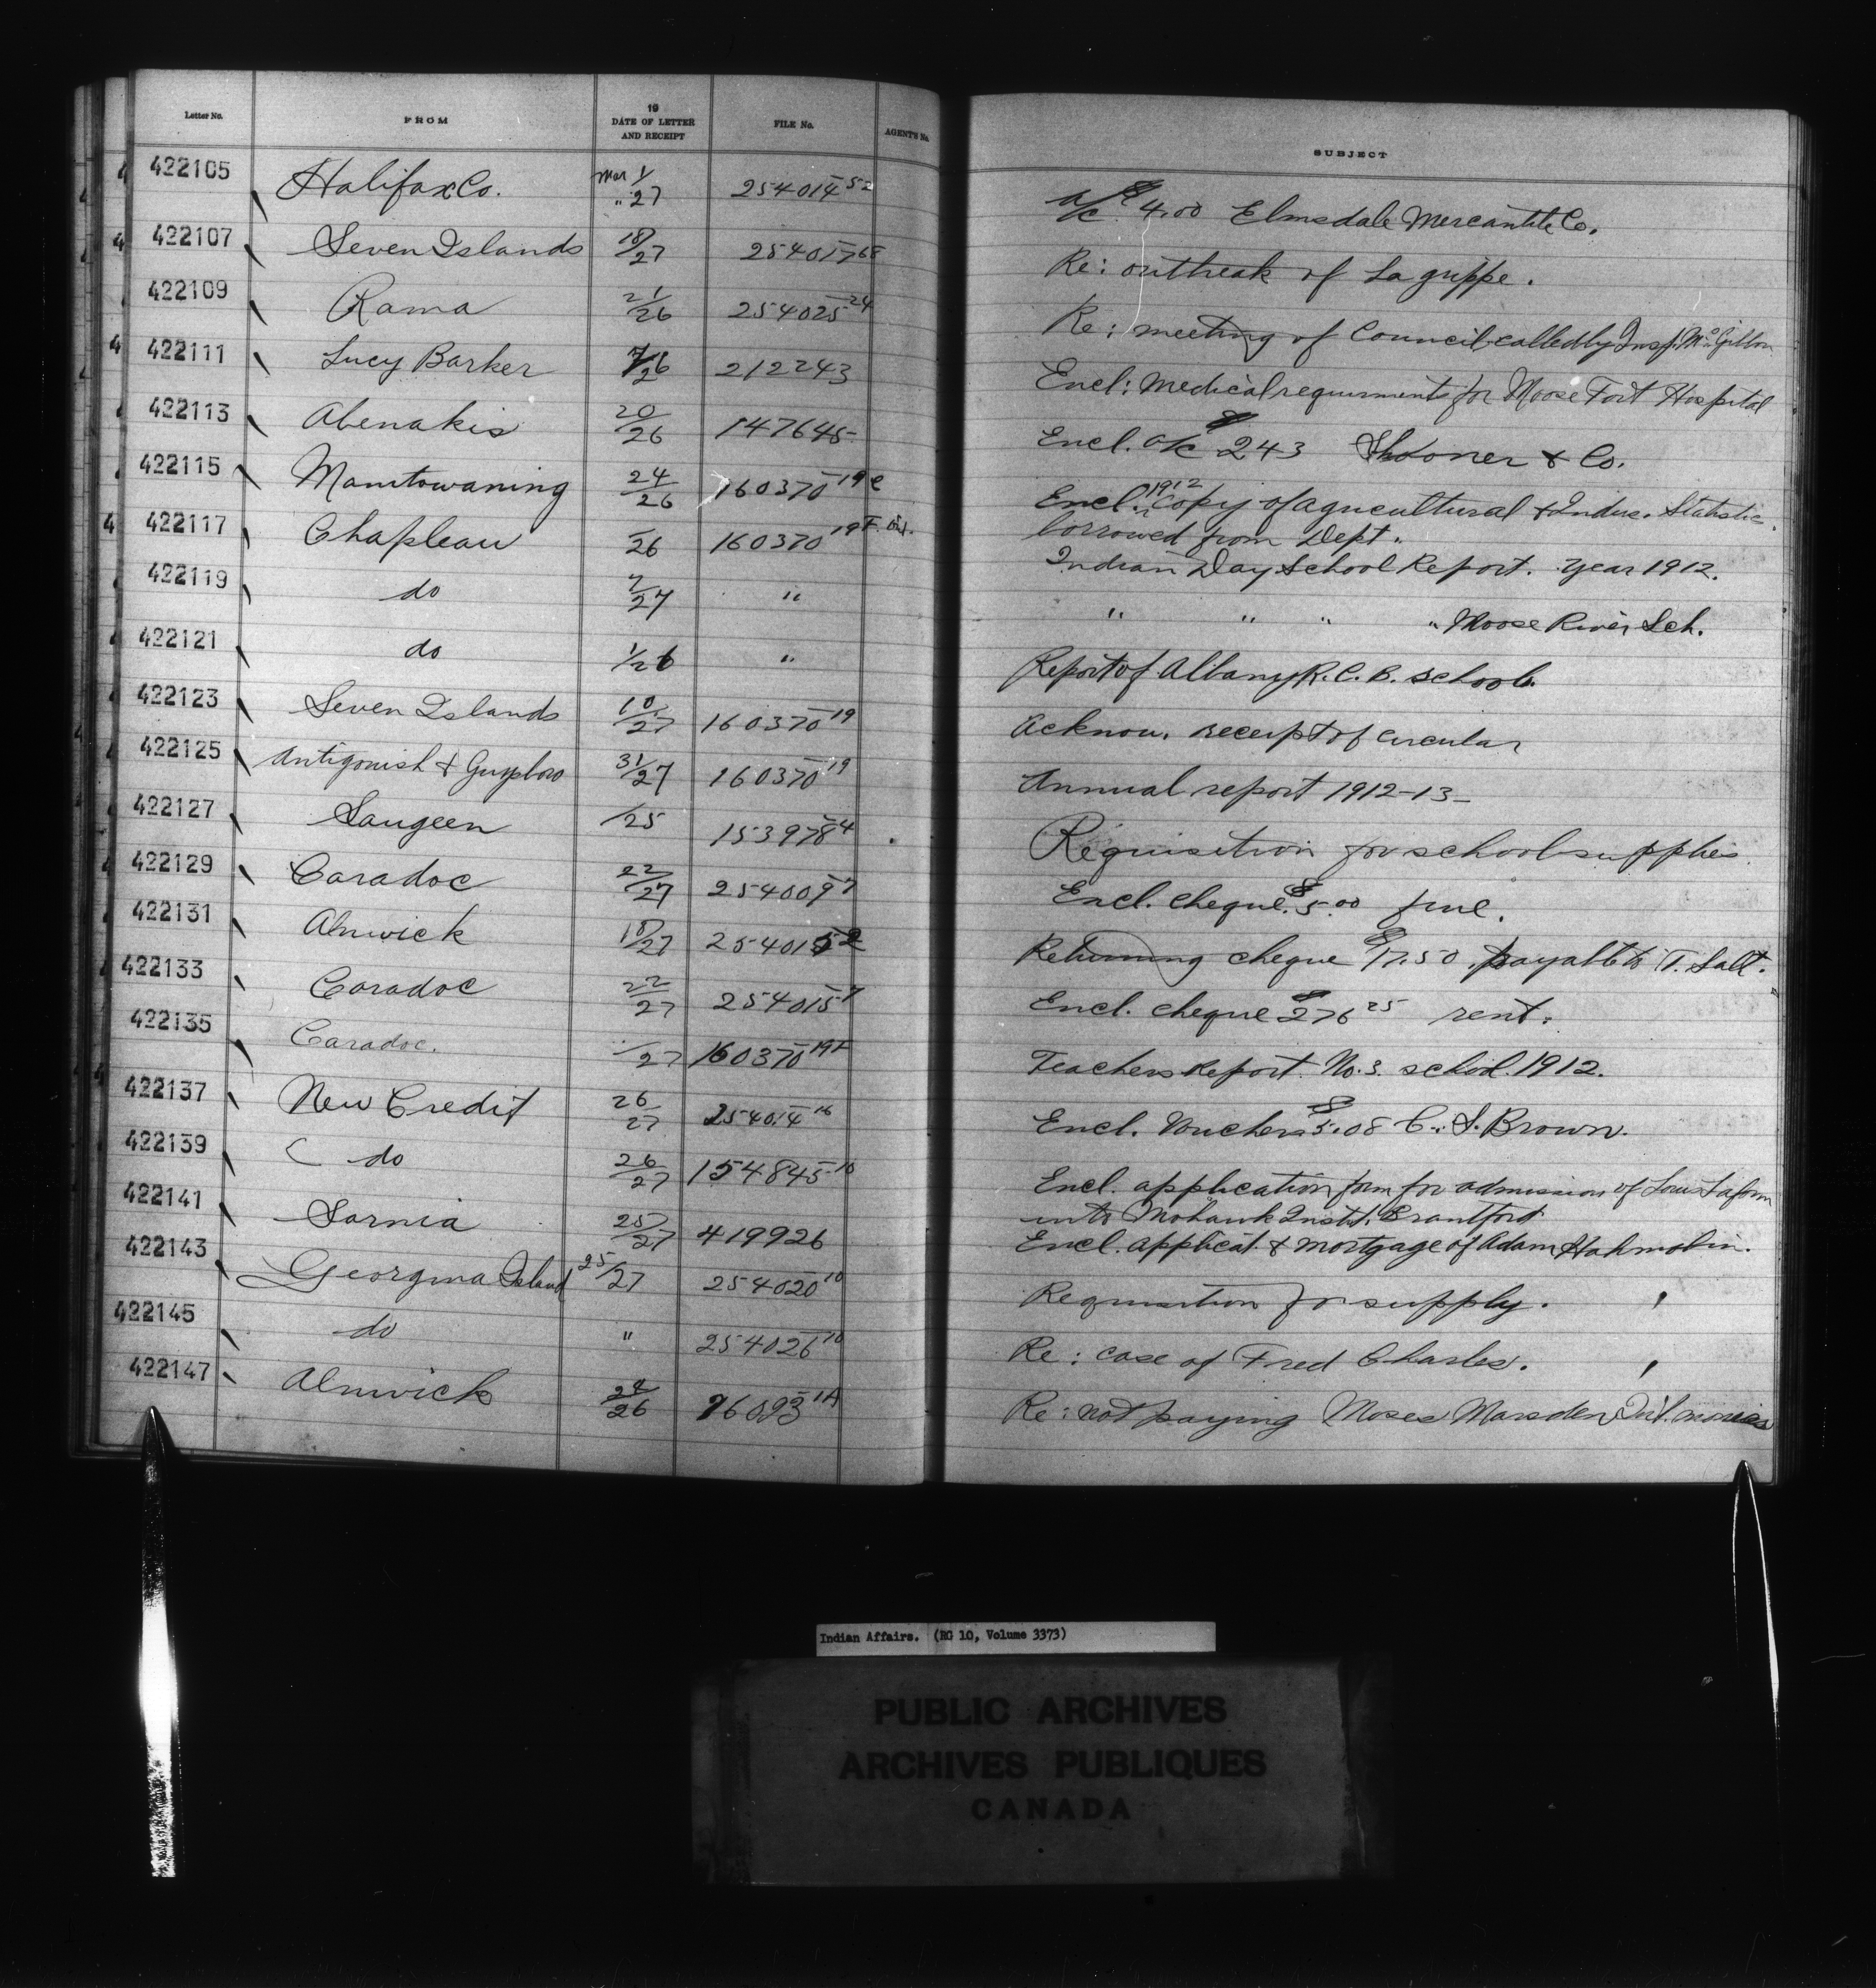 Letter No. FROM 19 DATE OF LETTER AND RECEIPT FILE No. AGENT'S No. SUBJECT
422105 Halifax Co. Mar 1/" 27 254014-52 a/c $4.00 Elmsdale Mercantile Co.
422107 Seven Islands 18/27 254017-68 Re: outbreak of La grippe.
422109 Rama 21/26 254025-24 Re: meeting of Council called by Insp. McGibbon
422111 Lucy Barker 7/26 212243 Encl: Medical requirments for Moose Fort Hospital
422113 Abenakis 20/26 147645- Encl. a/c $243 Shooner & Co.
422115 Manitowaning 24/26 160370-19e Encl. 1912 Copy of agricultural & Indus. Statistic.
borrowed from Dept.
422117 Chapleau /26 160370-19F. Indian Day School Report. Year 1912.
422119 do 7/27 " " " " " Moose River Sch.
422121 do 1/26 " Report of Albany R.C.B. school.
422123 Seven Islands 18/27 160370-19 Acknow. receipt of circular
422125 Antigonish & Guysboro 31/27 160370-19 Annual report 1912-13-
422127 Saugeen /25 153978-4 Requisition for school supplies.
422129 Caradoc 22/27 254009-7 Encl. cheque $5.00 fine.
422131 Alnwick 18/27 254015-2 Returning cheque $17.50 payable to T. Salt.
422133 Caradoc 22/27 254015-7 Encl. cheque $276 25 rent.
422135 Caradoc. /27 160370-19F Teachers Report. No. 3. school. 1912.
422137 New Credit 26/27 254014-16 Encl. Voucher $5.08 C. S. Brown.
422139 do 26/27 154845-10 Encl. application form for admission of Louis Laform
into Mohawk Instit. Brantford
422141 Sarnia 25/27 419926 Encl. applicat. & mortgage of Adam
422143 Georgina Island 25/27 254020-10 Requisition for supply.
422145 do " 254026-10 Re: case of Fred Charles.
422147 Alnwick 24/26 76093-1A Re: not paying Moses Marsden Int. monies
Indian Affairs. (RG 10, Volume 3373)
PUBLIC ARCHIVES
ARCHIVES PUBLIQUES
CANADA